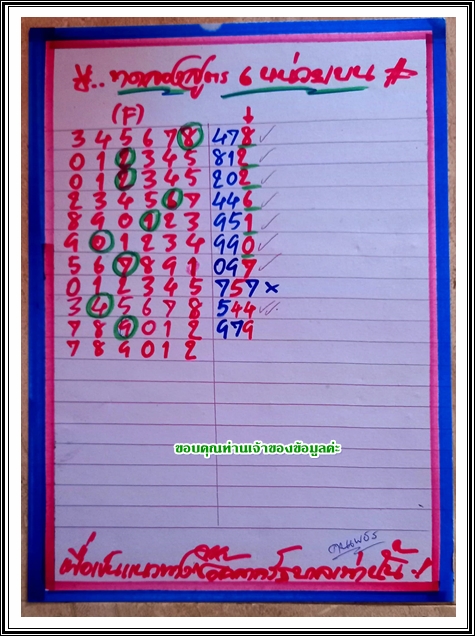 *.. ทดลองสูตร 6 หน่วยบน #
(F) ↓
3 4 5 6 7 8 478 ✓
0 1 2 3 4 5 812 ✓
0 1 2 3 4 5 202 ✓
2 3 4 5 6 7 446 ✓
8 9 0 1 2 3 951 ✓
9 0 1 2 3 4 990 ✓
5 6 7 8 9 1 097 ✓
0 1 2 3 4 5 757 ×
3 4 5 6 7 8 544 ✓
7 8 9 0 1 2 979
7 8 9 0 1 2
ขอบคุณท่านเจ้าของข้อมูลค่ะ
เพื่อเป็นแนวทาง เท่านั้น !